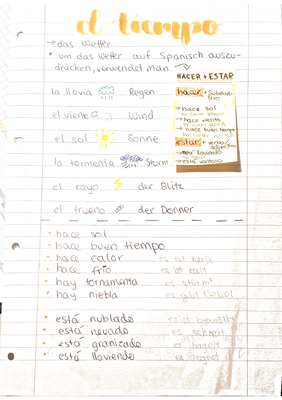 el tiempo
→ das Wetter
• um das Wetter auf Spanisch auszu-
drücken, verwendet man
HACER + ESTAR
hacer + Substan-
tivo
→ hace sol
→ hace viento
→ hace buen tiempo
estar + verbo/
→ está nublado
→ está ventoso
la lluvia Regen
el viento Wind
el sol Sonne
la tormenta Sturm
el rayo der Blitz
el trueno der Donner
• hace sol
• hace buen tiempo
• hace calor es ist heiß
• hace frío es ist kalt
• hay tornamenta es stürmt
• hay niebla es gibt Nebel
• está nublado es ist bewölkt
• está nevado es schneit
• está granizado es hagelt
• está lloviendo es regnet